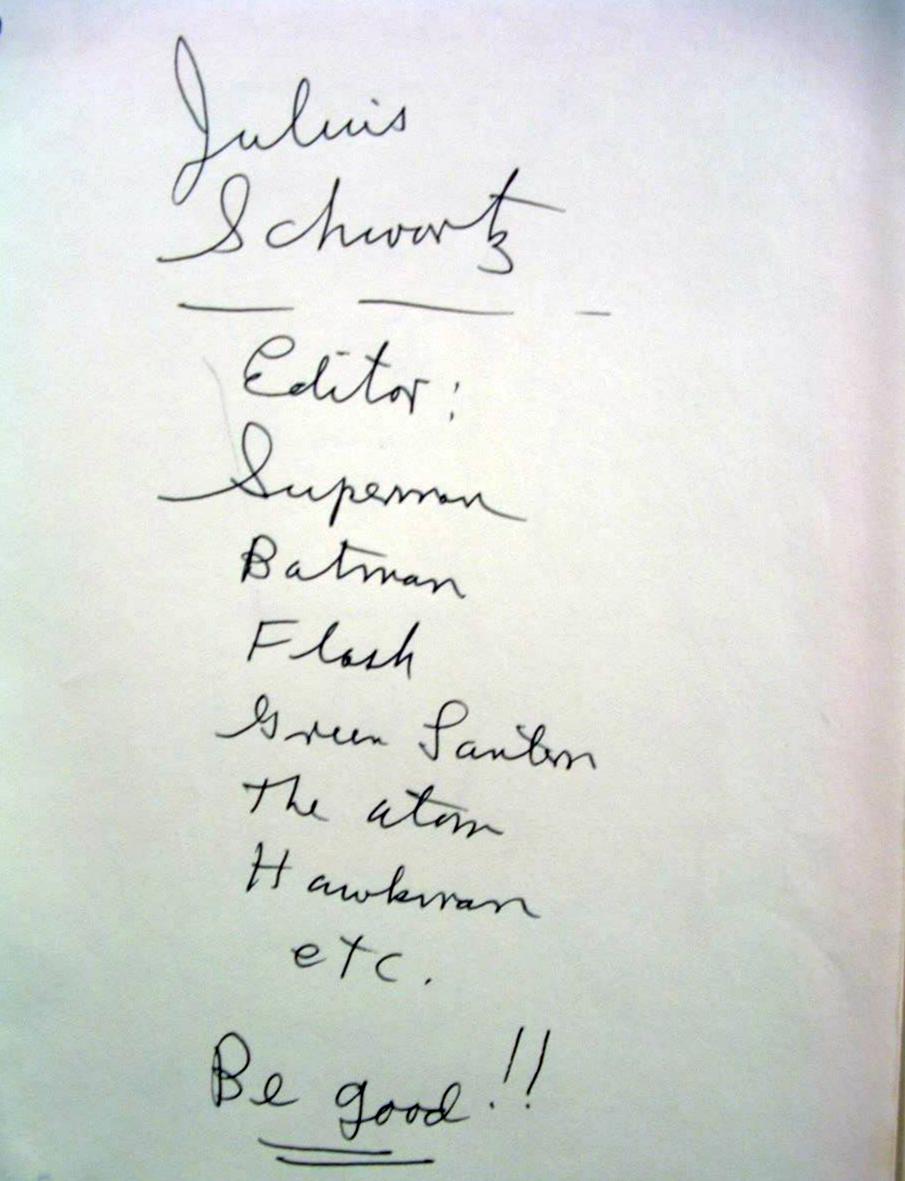 Julius
Schwartz
Editor:
Superman
Batman
Flash
Green Lantern
The atom
Hawkman
etc.
Be good!!